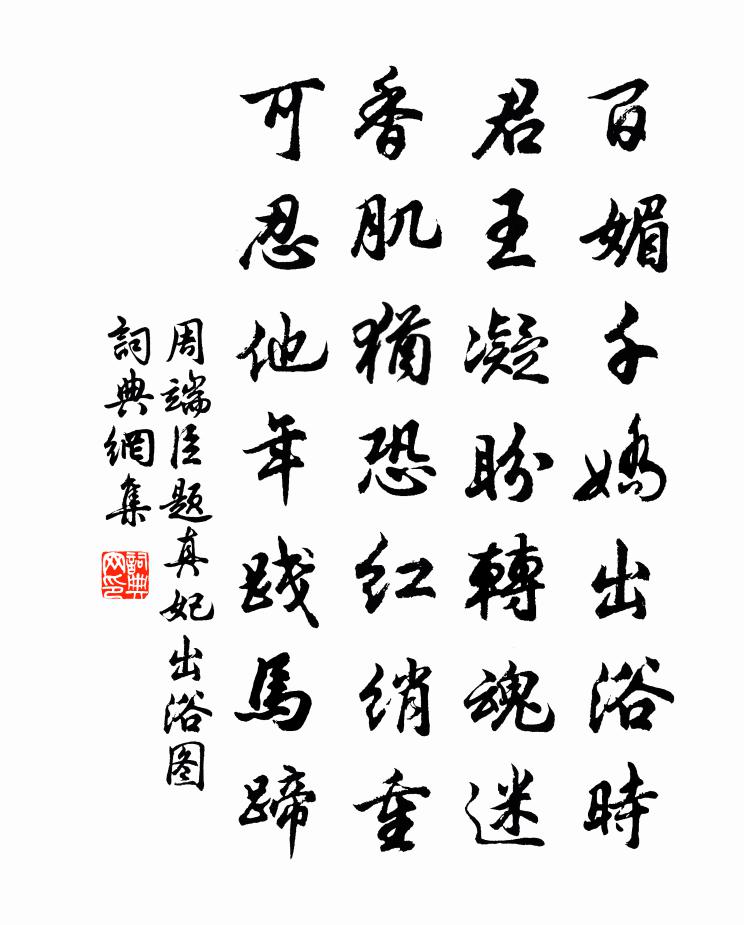 百媚千嬌出浴時
君王凝盼轉魂迷
香肌猶恐紅綃重
可忍他年踐馬蹄
周端臣题真妃出浴图
詞典網集
詞典網印